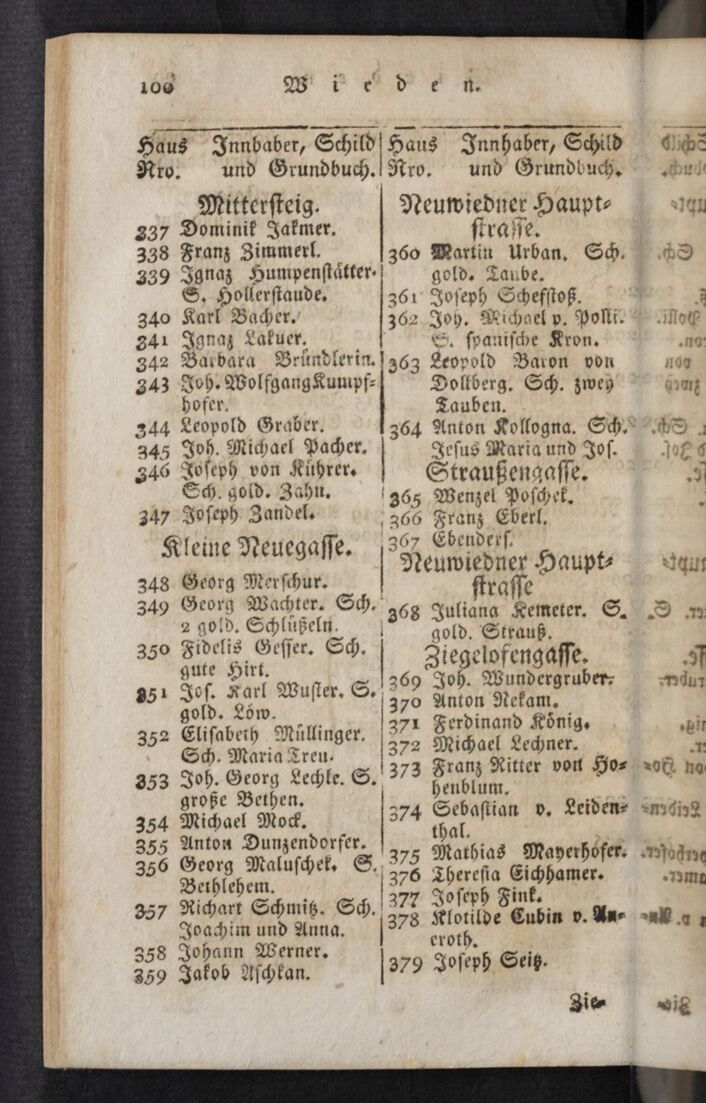 100 Wieden.
Haus Innhaber, Schild
Nro. und Grundbuch.
Mittersteig.
337 Dominik Jakmer.
338 Franz Zimmerl.
339 Ignaz Humpenstätter.
S. Hollerstaude.
340 Karl Bacher.
341 Ignaz Lakner.
342 Barbara Bründlerin.
343 Joh. Wolfgang Kumpf-
hofer.
344 Leopold Graber.
345 Joh. Michael Pacher.
346 Joseph von Kührer.
Sch. gold. Zahn.
347 Joseph Zandel.
Kleine Neuegasse.
348 Georg Merschur.
349 Georg Wachter. Sch.
2 gold. Schlüßeln.
350 Fidelis Gesser. Sch.
gute Hirt.
351 Jos. Karl Wuster. S.
gold. Löw.
352 Elisabeth Müllinger.
Sch. Maria Treu.
353 Joh. Georg Lechle. S.
große Bethen.
354 Michael Mock.
355 Anton Dunzendorfer.
356 Georg Maluschek. S.
Bethlehem.
357 Richart Schmitz. Sch.
Joachim und Anna.
358 Johann Werner.
359 Jakob Aschkan.
Haus Innhaber, Schild
Nro. und Grundbuch.
Neuwiedner Haupt-
strasse.
360 Martin Urban. Sch.
gold. Taube.
361 Joseph Schefstoß.
362 Joh. Michael v. Polli.
S. spanische Kron.
363 Leopold Baron von
Dollberg. Sch. zwey
Tauben.
364 Anton Kollogna. Sch.
Jesus Maria und Jos.
Straußengasse.
365 Wenzel Poschek.
366 Franz Eberl.
367 Ebenders.
Neuwiedner Haupt-
strasse
368 Juliana Kemeter. S.
gold. Strauß.
Ziegelofengasse.
369 Joh. Wundergruber.
370 Anton Nekam.
371 Ferdinand König.
372 Michael Lechner.
373 Franz Ritter von Ho-
henblum.
374 Sebastian v. Leiden-
thal.
375 Mathias Mayerhofer.
376 Theresia Eichhamer.
377 Joseph Fink.
378 Klotilde Cubin v. An-
croth.
379 Joseph Seitz.
Zie-